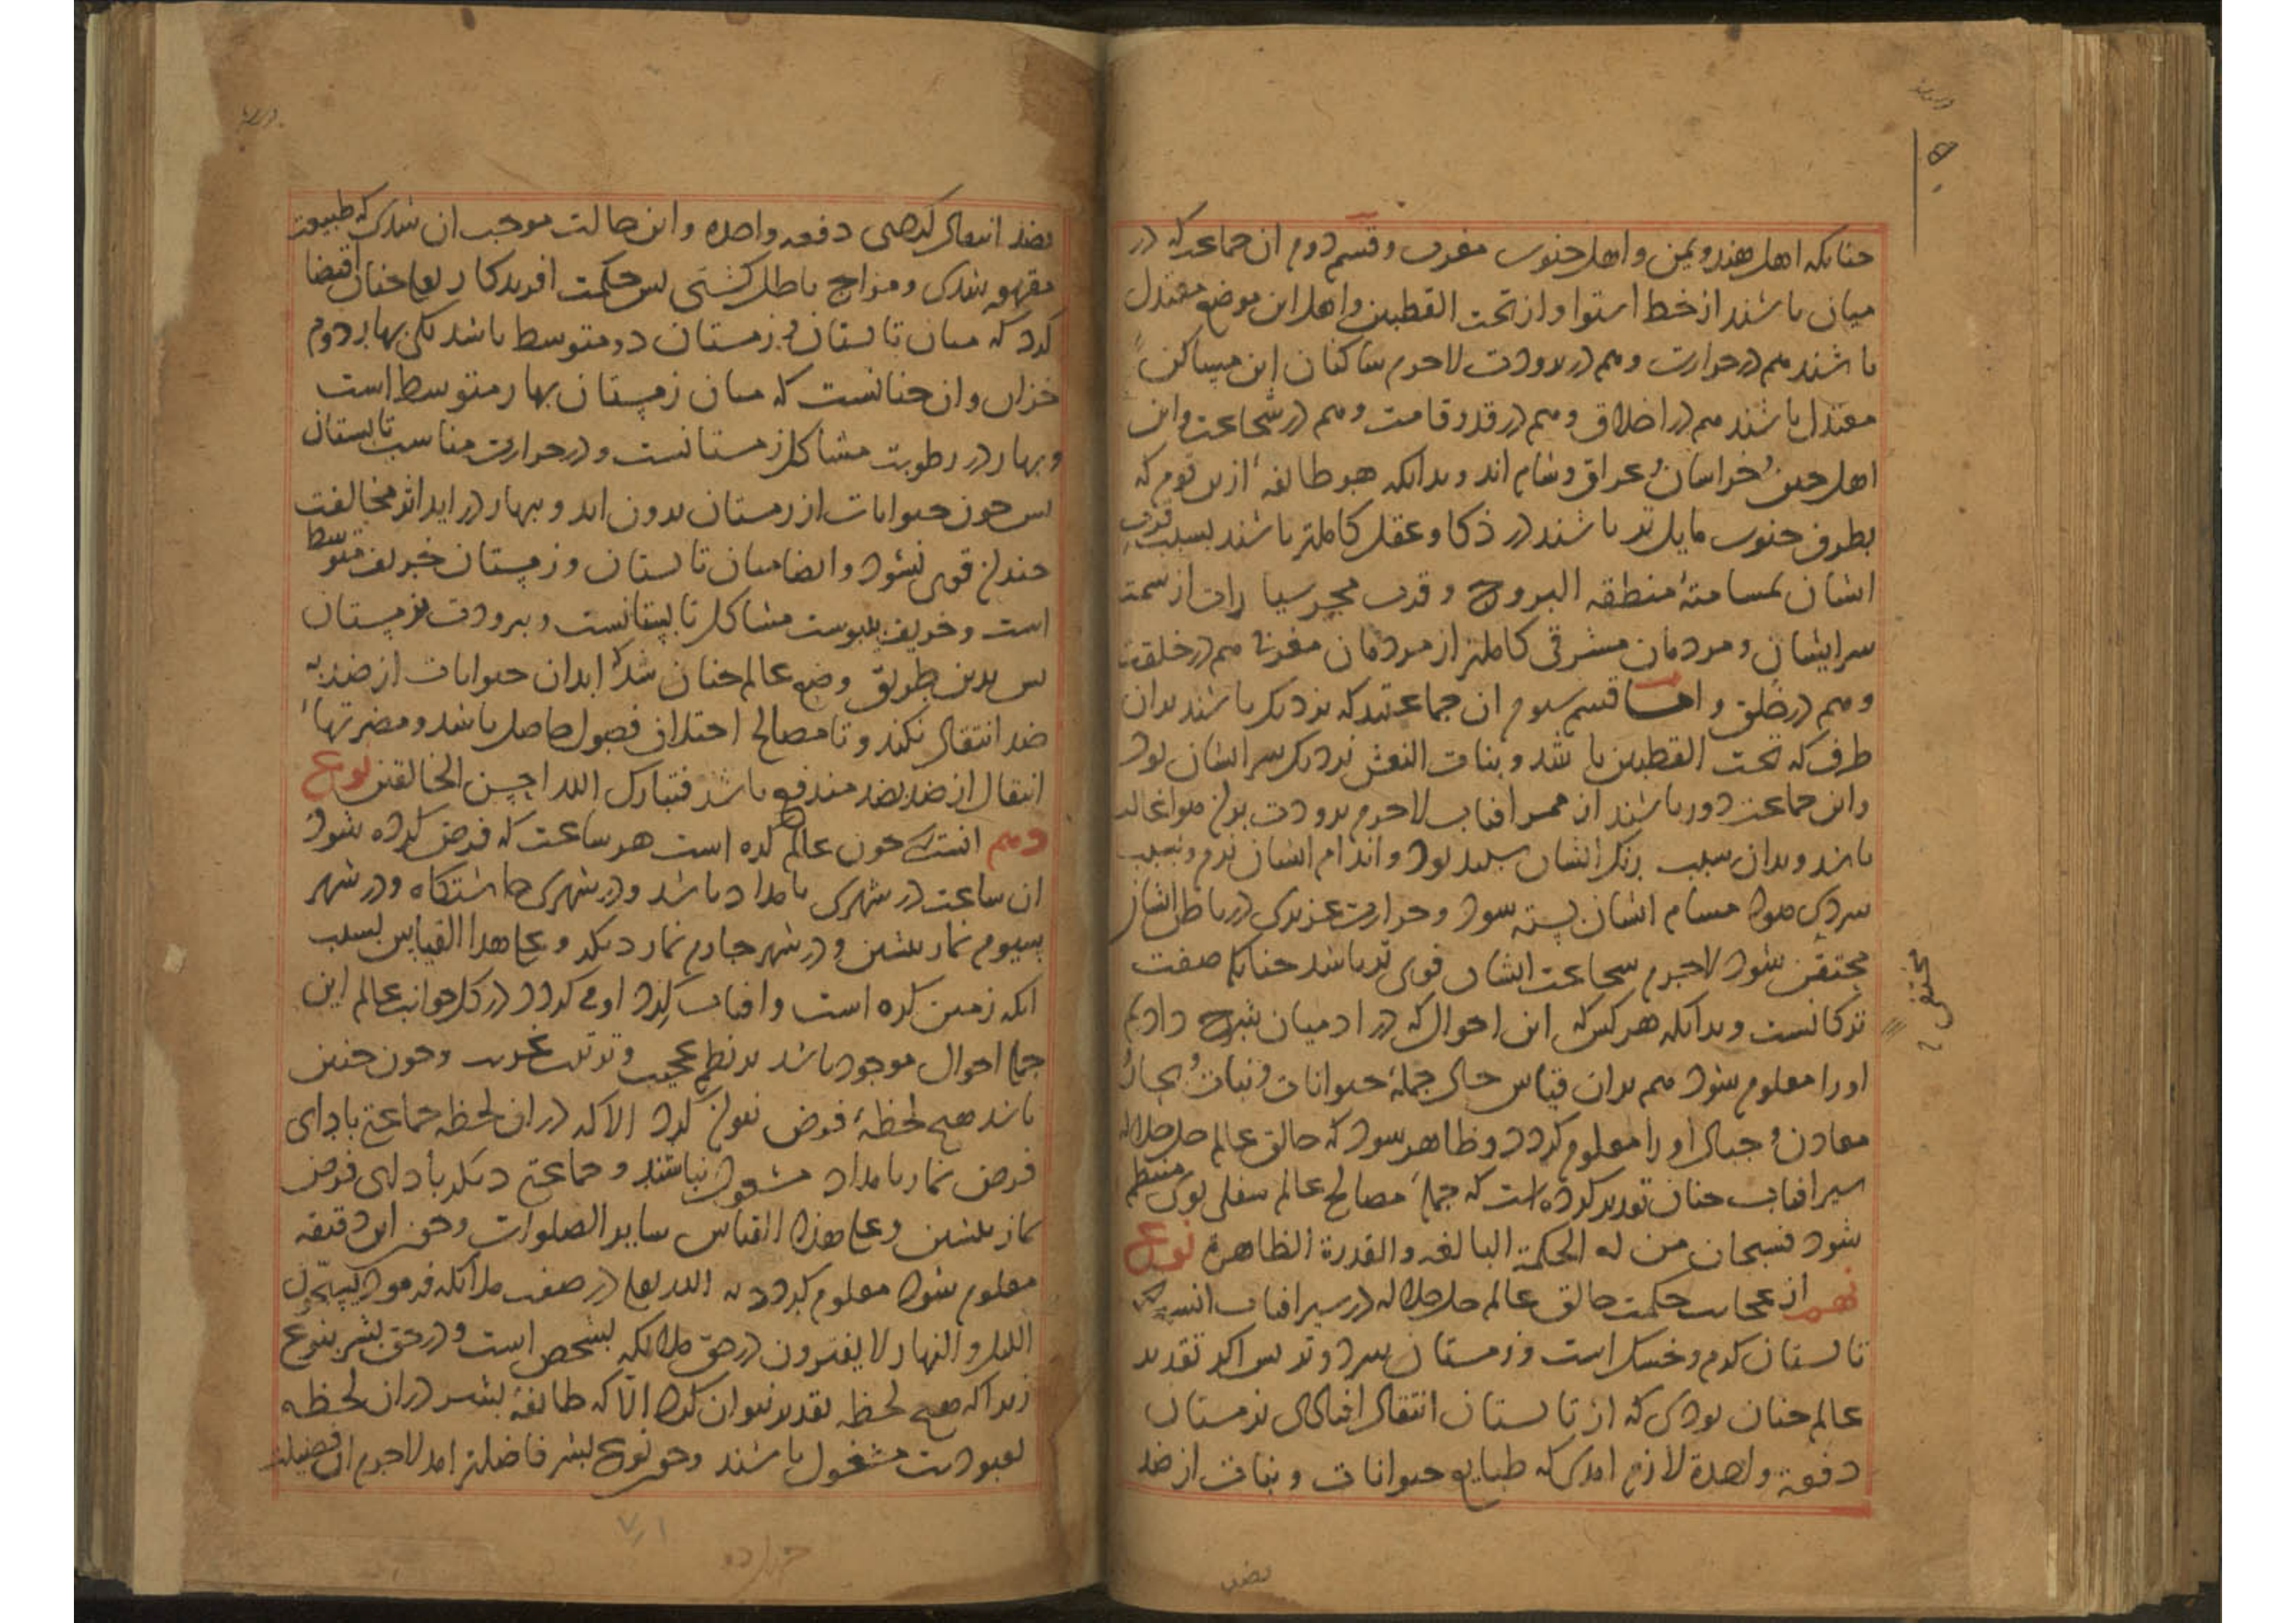 چنانکه اهل هند و یمن و اهل جنوب مغرب و قسم دوم ان جماعت که در
میان باشند از خط استوا و از تحت القطبین و اهل این موضع معتدل
باشند هم در حرارت و هم در برودت لاجرم ساکنان این مساکن
معتدل باشند هم در اخلاق و هم در قد و قامت و هم در شجاعت و این
اهل چین و خراسان و عراق و شام اند و بدانکه هر طایفه ازین قوم که
بطرف جنوب مایل تر باشند در ذکا و عقل کاملتر باشند بسبب قرب
ایشان بمسامتهٔ منطقه البروج و قرب ممر سیارات از سمت
سر ایشان و مردمان مشرقی کاملتر از مردمان مغربی هم در خلقت
و هم در خلق و اما قسم سیوم ان جماعتند که نزدیک باشند بدان
طرف که تحت القطبین باشد و بنات النعش نزدیک سر ایشان بود
و این جماعت دور باشند از ممر افتاب لاجرم برودت بران هوا غالب
باشد و بدان سبب رنک ایشان سپید بود و اندام ایشان نرم و بسبب
سردی هوا مسام ایشان بسته شود و حرارت غریزی در باطن ایشان
محتقن شود لاجرم شجاعت ایشان قوی تر باشد چنانکه صفت
ترکانست و بدانکه هر کس که این احوال که در ادمیان شرح دادیم
او را معلوم شود هم بدان قیاس حال جملهٔ حیوانات و نبات و بحار و
معادن و جبال او را معلوم کردد و ظاهر شود که خالق عالم جل جلاله
سیر افتاب چنان تقدیر کرده است که جملهٔ مصالح عالم سفلی بوی منتظم
شود فسبحان من له الحکمة البالغه والقدرة الظاهرة نوع
نهم از عجایب حکمت خالق عالم جل جلاله در سیر افتاب انست که
تابستان کرم و خشک است و زمستان سرد و تر پس اکر تقدیر
عالم چنان بودی که از تابستان انتقال افتادی بزمستان
دفعة واحدة لازم امدی که طبایع حیوانات و نبات از ضد
بضد
محتقن
بضد انتقال کردی دفعه واحده و این حالت موجب ان شدی که طبیعت
مقهور شدی و مزاج باطل کشتی پس حکمت افریدکار تعالی چنان اقتضا
کرد که میان تابستان و زمستان دو متوسط باشد یکی بهار دوم
خزان و ان چنانست که میان زمستان بهار متوسط است
و بهار در رطوبت مشاکل زمستانست و در حرارت مناسب تابستان
پس چون حیوانات از زمستان بیرون ایند و ببهار در ایند اثر مخالفت
چندان قوی نشود و ایضا میان تابستان و زمستان خریف متوسط
است و خریف بیبوست مشاکل تابستانست و ببرودت بزمستان
پس بدین طریق وضع عالم چنان شد که ابدان حیوانات از ضد به
ضد انتقال نکند و تا مصالح اختلاف فصول حاصل باشد و مضرتهاء
انتقال از ضد بضد مندفع باشد فتبارک الله احسن الخالقین نوع
دهم انست که چون عالم کره است هر ساعت که فرض کرده شود
ان ساعت در شهری بامداد باشد و در شهری چاشتکاه و در شهر
سیوم نماز پیشین و در شهر چهارم نماز دیکر و علی هذا القیاس بسبب
انکه زمین کره است و افتاب کرد او می کردد در کل جوانب عالم این
جمله احوال موجود باشد بر نظم عجیب و ترتیب غریب و چون چنین
باشد هیچ لحظهٔ فرض نتوان کرد الا که در ان لحظه جماعتی باداى
فرض نماز بامداد مشغول باشند و جماعتی دیکر باداى فرض
نماز پیشین و علی هذا القیاس سایر الصلوات و چون این دقیقه
معلوم شود معلوم کردد که الله تعالی در صفت ملائکه فرمود یسبحون
اللیل والنهار لا یفترون در حق ملائکه بشخص است و در حق بشر بنوع
زیرا که هیچ لحظه تقدیر نتوان کرد الا که طایفهٔ بشر در ان لحظه
بعبودیت مشغول باشند و چون نوع بشر فاضلتر امد لاجرم ان فضیلت